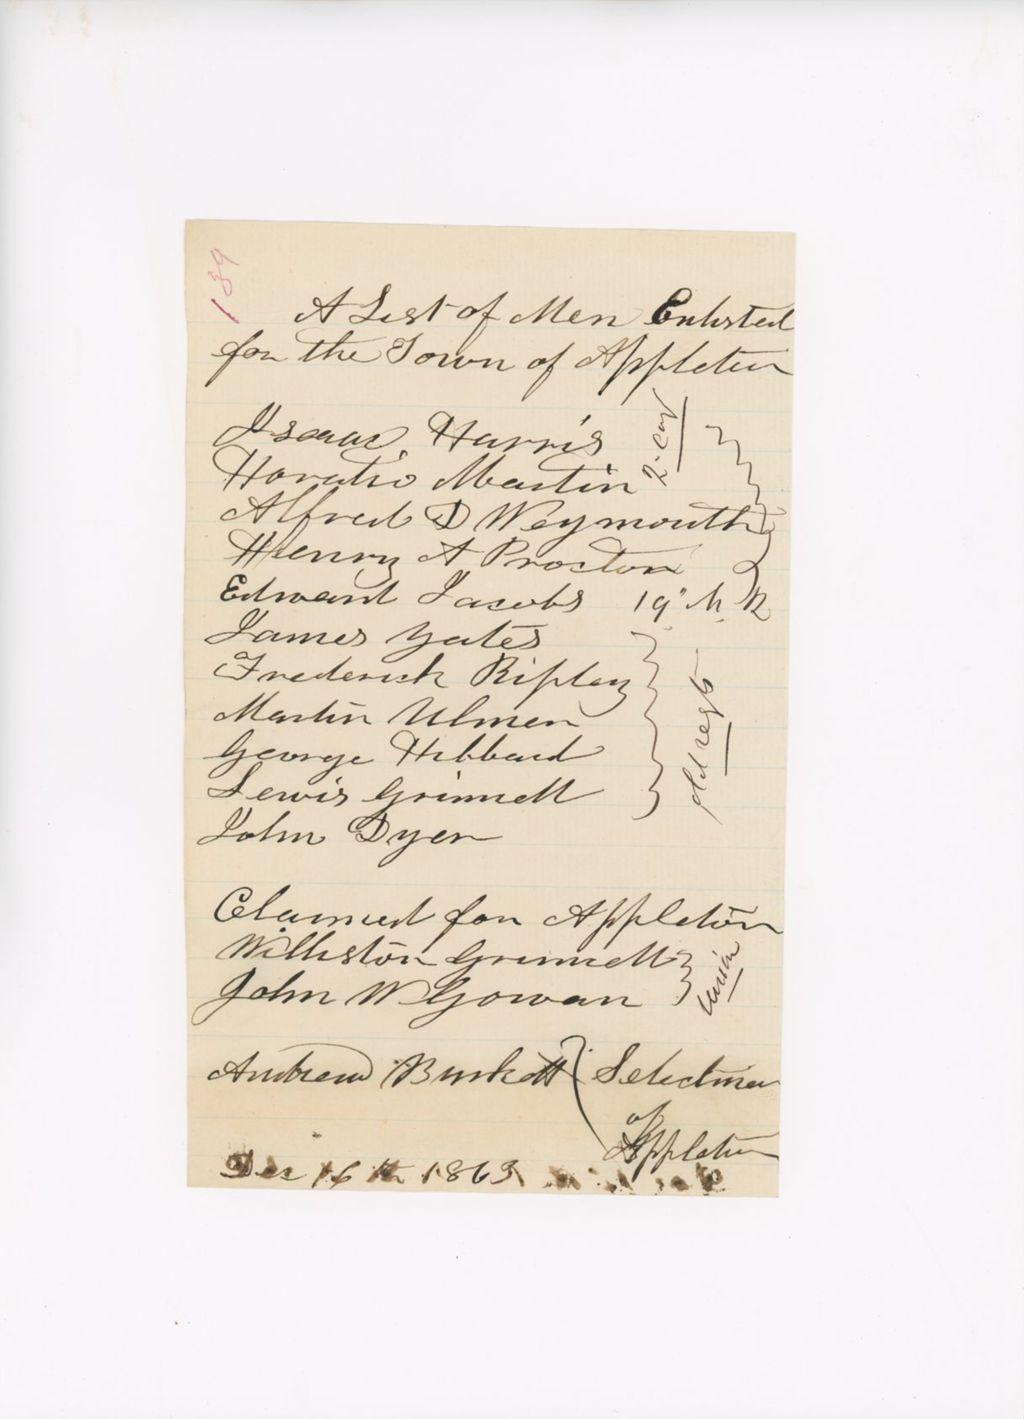 139
A List of Men Enlisted
for the Town of Appleton
Isaac Harris
Horatio Martin
2. cav
Alfred D Weymouth
Henry A Proctor
Edward Jacobs 19" M R
James Yates
Frederick Ripley
Martin Ulmer
old regts
George Hibbard
Lewis Grinnell
John Dyer
Claimed for Appleton
Williston Grinnell
John W Gowan
Union
Andrew Burkett Selectmen
of
Appleton
Dec 16th 1863